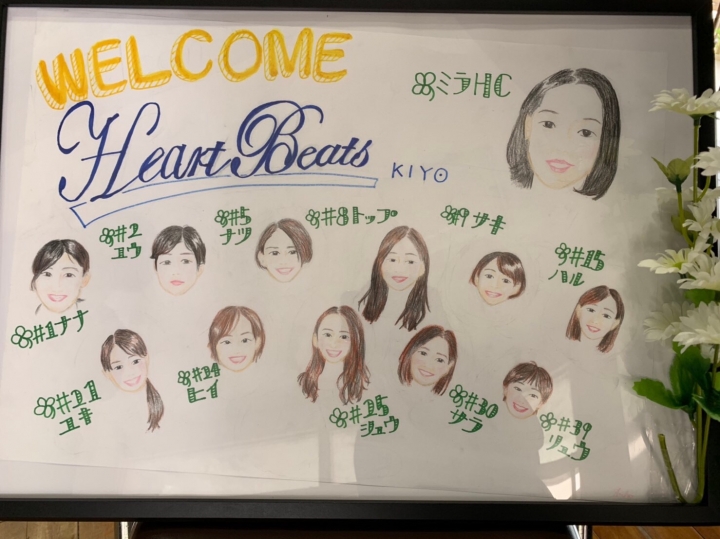 WELCOME
Heart Beats
KIYO
ミラHC
#1ナナ
#2
ユウ
#5
ナツ
#8トップ
#9サキ
#15
ハル
#11
ユキ
#14
ヒイ
#25
ジュウ
#30
サラ
#39
リュウ